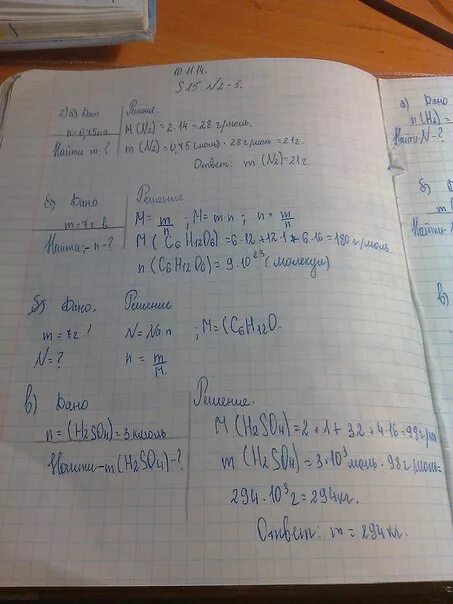 10.11.14.
§ 15. №2-5.
2) а) Дано
n = 0,75
Найти m - ?
Решение.
M (N2) = 2 · 14 = 28 г/моль.
m (N2) = 0,75 (моль) · 28 г/моль = 21г.
Ответ: m (N2) = 21г.
б) Дано
m = 72г
Найти: - n - ?
Решение
M = m/n ; M = m·n ; n = m/n
M ( C6H12O6) = 6·12 + 12·1 + 6·16 = 180 г/моль
n (C6H12O6) = 9·10^23 (молекул)
б) Дано.
m = 72
N = ?
Решение
N = Na·n ; M = (C6H12O.
n = m/M.
в) Дано
n = (H2SO4) = 3 кмоль
Найти - m (H2SO4) - ?
Решение.
M (H2SO4) = 2 · 1 + 32 + 4·16 = 98г/
m (H2SO4) = 3·10^3 моль · 98 г/моль =
294 · 10^3 г = 294кг.
Ответ: m = 294 кг.
а) Дано
n (H2) =
Найти N - ?
б) Дано
m (
Найти
в)